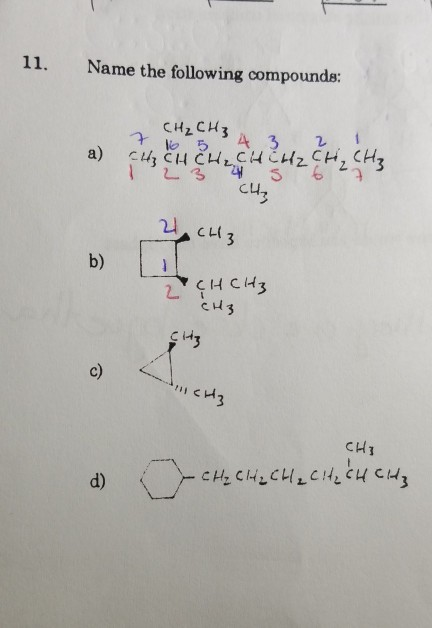 11. Name the following compounds:
CH2 CH3
7 16 5 4 3 2 1
a) CH3 CH CH2 CH CH2 CH2 CH3
1 2 3 4 5 6 7
CH3
21 CH3
b) 1
2 CH CH3
CH3
CH3
c)
CH3
CH3
d) CH2 CH2 CH2 CH2 CH CH3